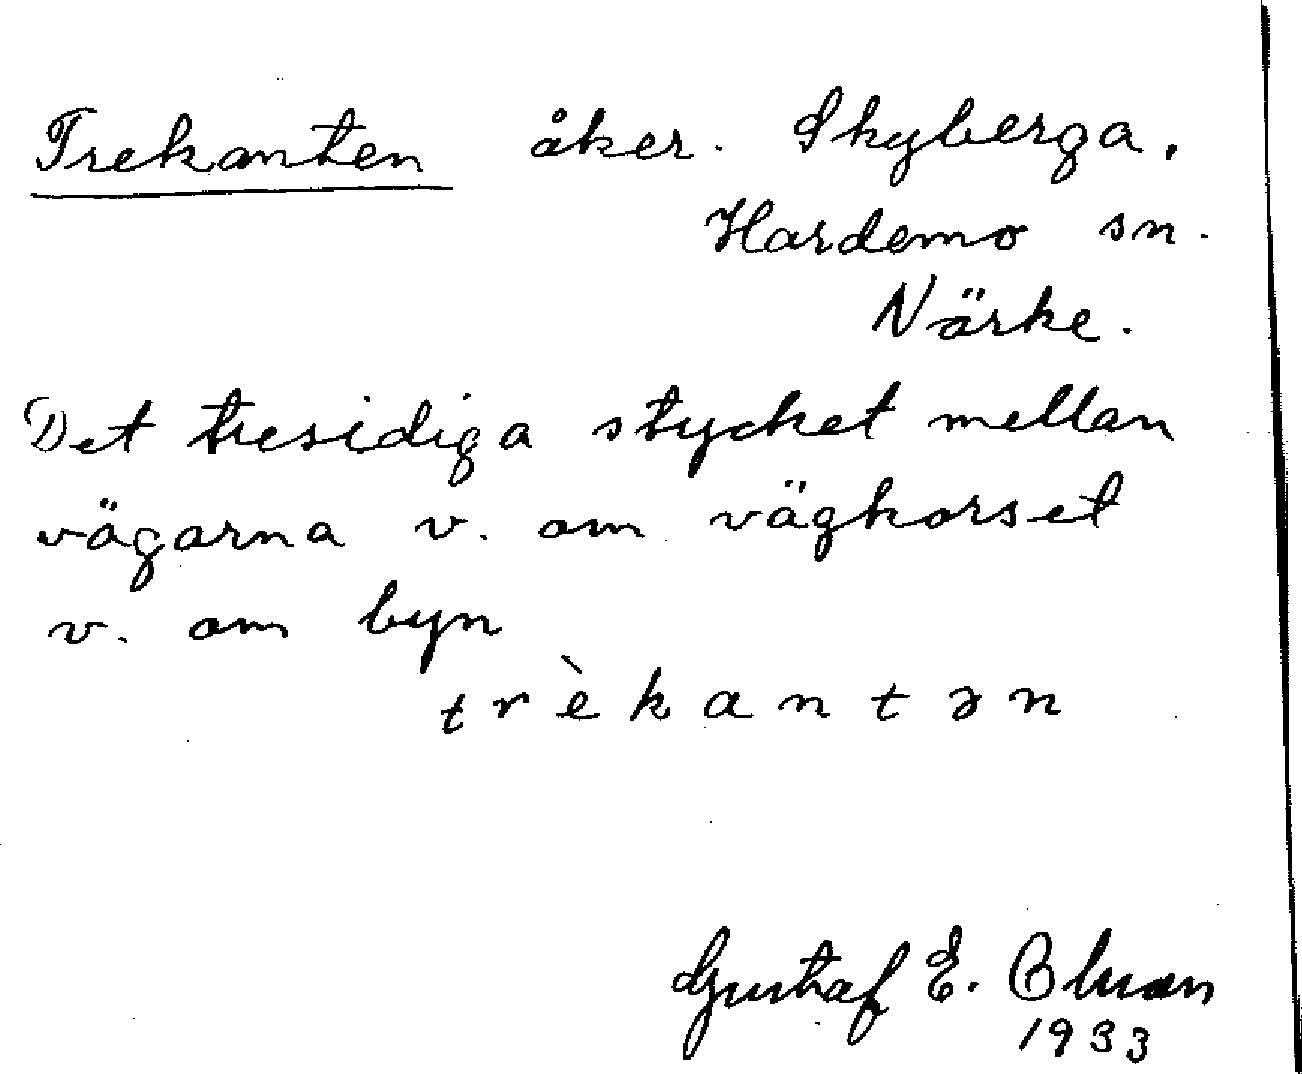 Trekanten åker. Skyberga,
Hardemo sn.
Närke.
Det tresidiga stycket mellan
vägarna v. om vägkorset
v. om byn
trèkantən
Gustaf E.
1933